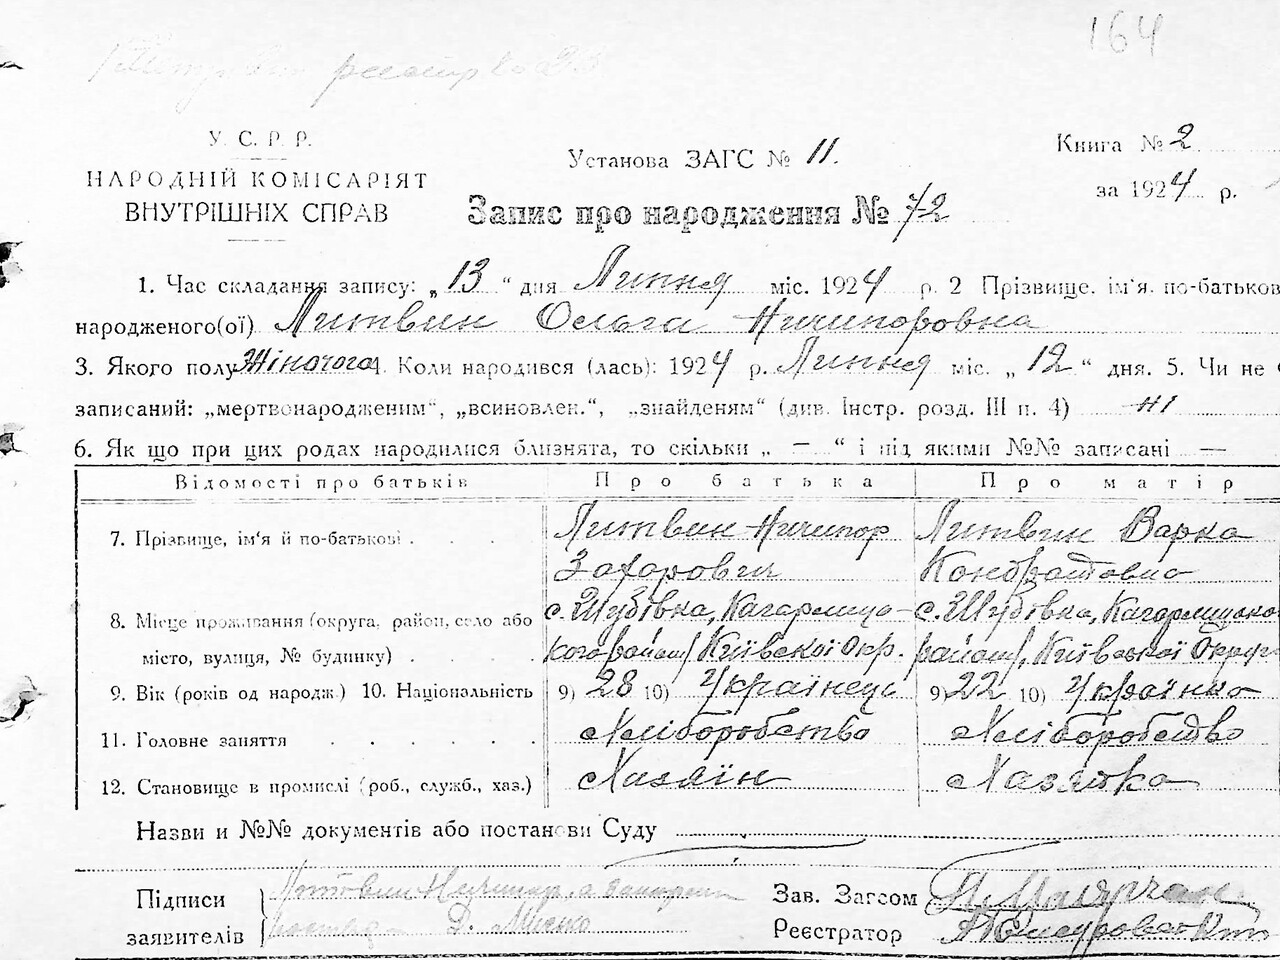 164
У. С. Р. Р.
НАРОДНІЙ КОМІСАРІЯТ
ВНУТРІШНІХ СПРАВ
Установа ЗАГС № 11.
Книга № 2
за 1924 р.
Запис про народження № 72
1. Час складання запису: „13“ дня Липня міс. 1924 р. 2 Прізвище, ім'я, по-батькові
народженого(ої) Литвин Ольга Ничипоровна
3. Якого полу Жіночого 4. Коли народився (лась): 1924 р. Липня міс. „12“ дня. 5. Чи не
записаний: „мертвонародженим“, „всиновлен.“, „знайденям“ (див. Інстр. розд. III п. 4) ні
6. Як що при цих родах народилися близнята, то скільки „ — “ і під якими №№ записані —
Відомості про батьків Про батька Про матір
7. Прізвище, ім'я й по-батькові Литвин Ничипор Литвин Варка
Захарович Кондратовна
8. Місце проживання (округа, район, село або с. Шубівка, Кагарлиць- с. Шубівка, Кагарлицько
місто, вулиця, № будинку) кого району Київскої Окр. району, Київської Округ
9. Вік (років од народж.) 10. Національність 9) 28 10) Українець 9) 22 10) Українка
11. Головне заняття Хліборобство Хліборобство
12. Становище в промислі (роб., служб., хаз.) Хазяїн Хазяйка
Назви и №№ документів або постанови Суду
Підписи Литвин Ничипор, а Зав. Загсом
заявителів Д. Реєстратор